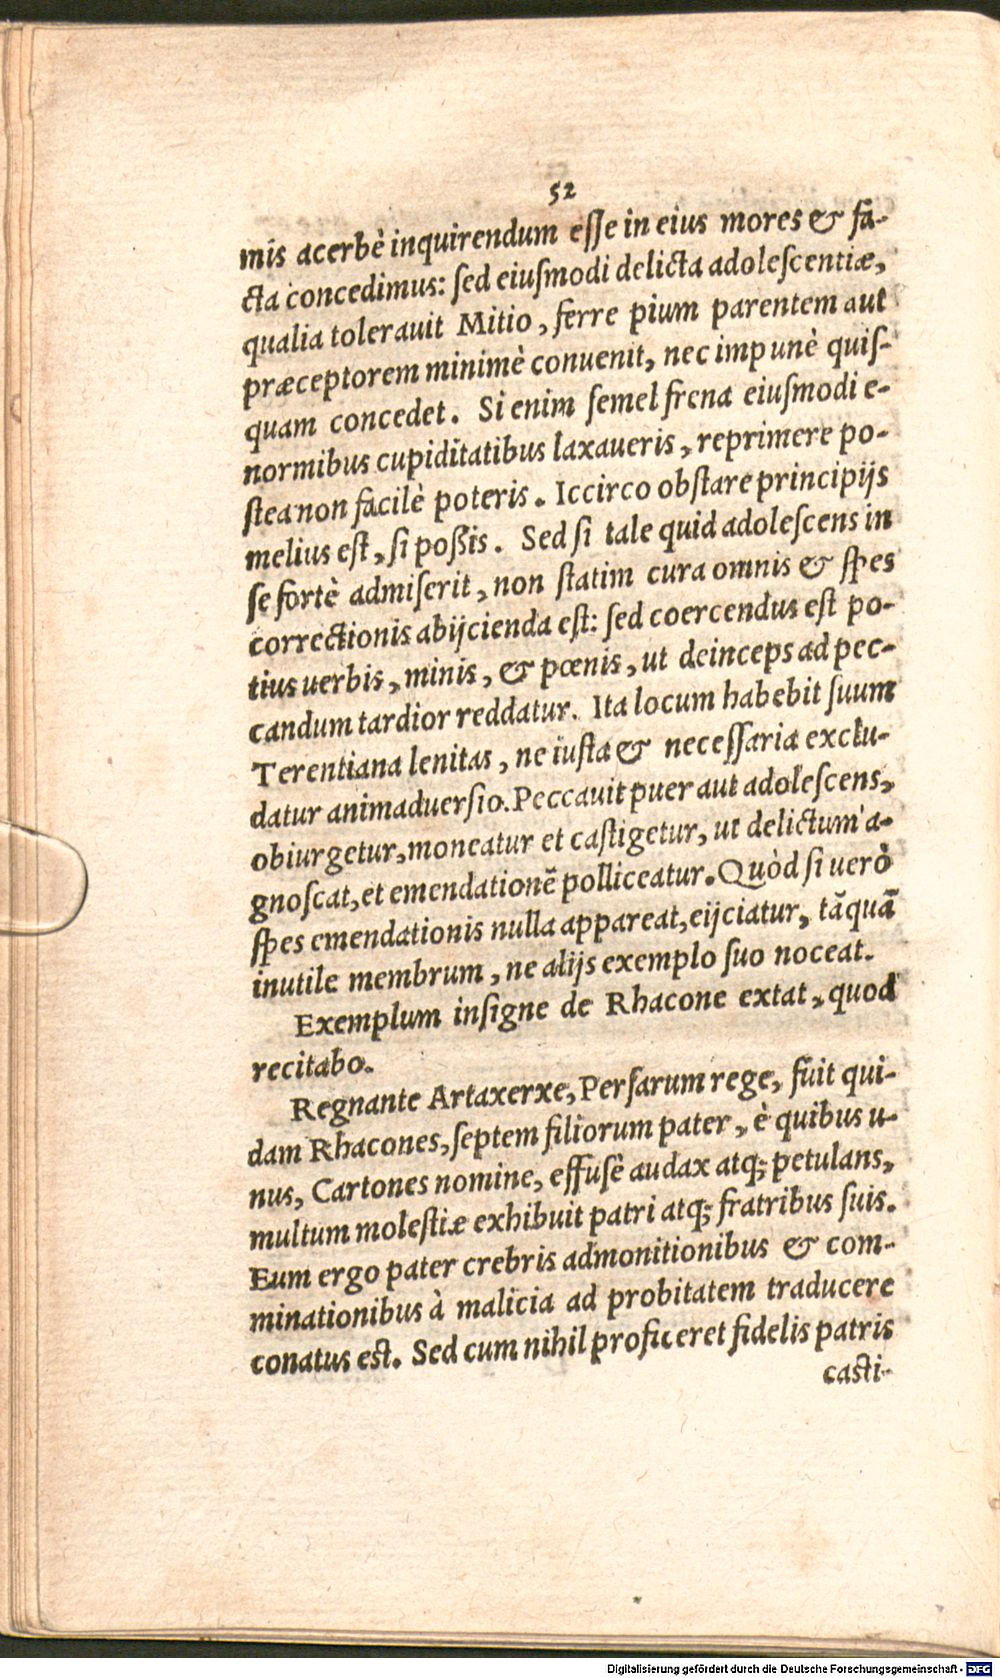 52
mis acerbè inquirendum eſſe in eius mores & fa-
cta concedimus: ſed eiuſmodi delicta adoleſcentiæ,
qualia tolerauit Mitio, ferre pium parentem aut
præceptorem minimè conuenit, nec impunè quiſ-
quam concedet. Si enim ſemel frena eiuſmodi e-
normibus cupiditatibus laxaueris, reprimere po-
ſtea non facilè poteris. Iccirco obſtare principijs
melius eſt, ſi poßis. Sed ſi tale quid adoleſcens in
ſe fortè admiſerit, non ſtatim cura omnis & ſpes
correctionis abijcienda eſt: ſed coercendus eſt po-
tius uerbis, minis, & pœnis, ut deinceps ad pec-
candum tardior reddatur. Ita locum habebit ſuum
Terentiana lenitas, ne iuſta & neceſſaria exclu-
datur animaduerſio. Peccauit puer aut adoleſcens,
obiurgetur, moneatur et caſtigetur, ut delictum a-
gnoſcat, et emendationẽ polliceatur. Quòd ſi uerò
ſpes emendationis nulla appareat, eijciatur, tãquã
inutile membrum, ne alijs exemplo ſuo noceat.
Exemplum inſigne de Rhacone extat, quod
recitabo.
Regnante Artaxerxe, Perſarum rege, fuit qui-
dam Rhacones, ſeptem filiorum pater, è quibus u-
nus, Cartones nomine, effuſè audax atq; petulans,
multum moleſtiæ exhibuit patri atq; fratribus ſuis.
Eum ergo pater crebris admonitionibus & com-
minationibus à malicia ad probitatem traducere
conatus eſt. Sed cum nihil proficeret fidelis patris
caſti-
Digitalisierung gefördert durch die Deutsche Forschungsgemeinschaft - DFG